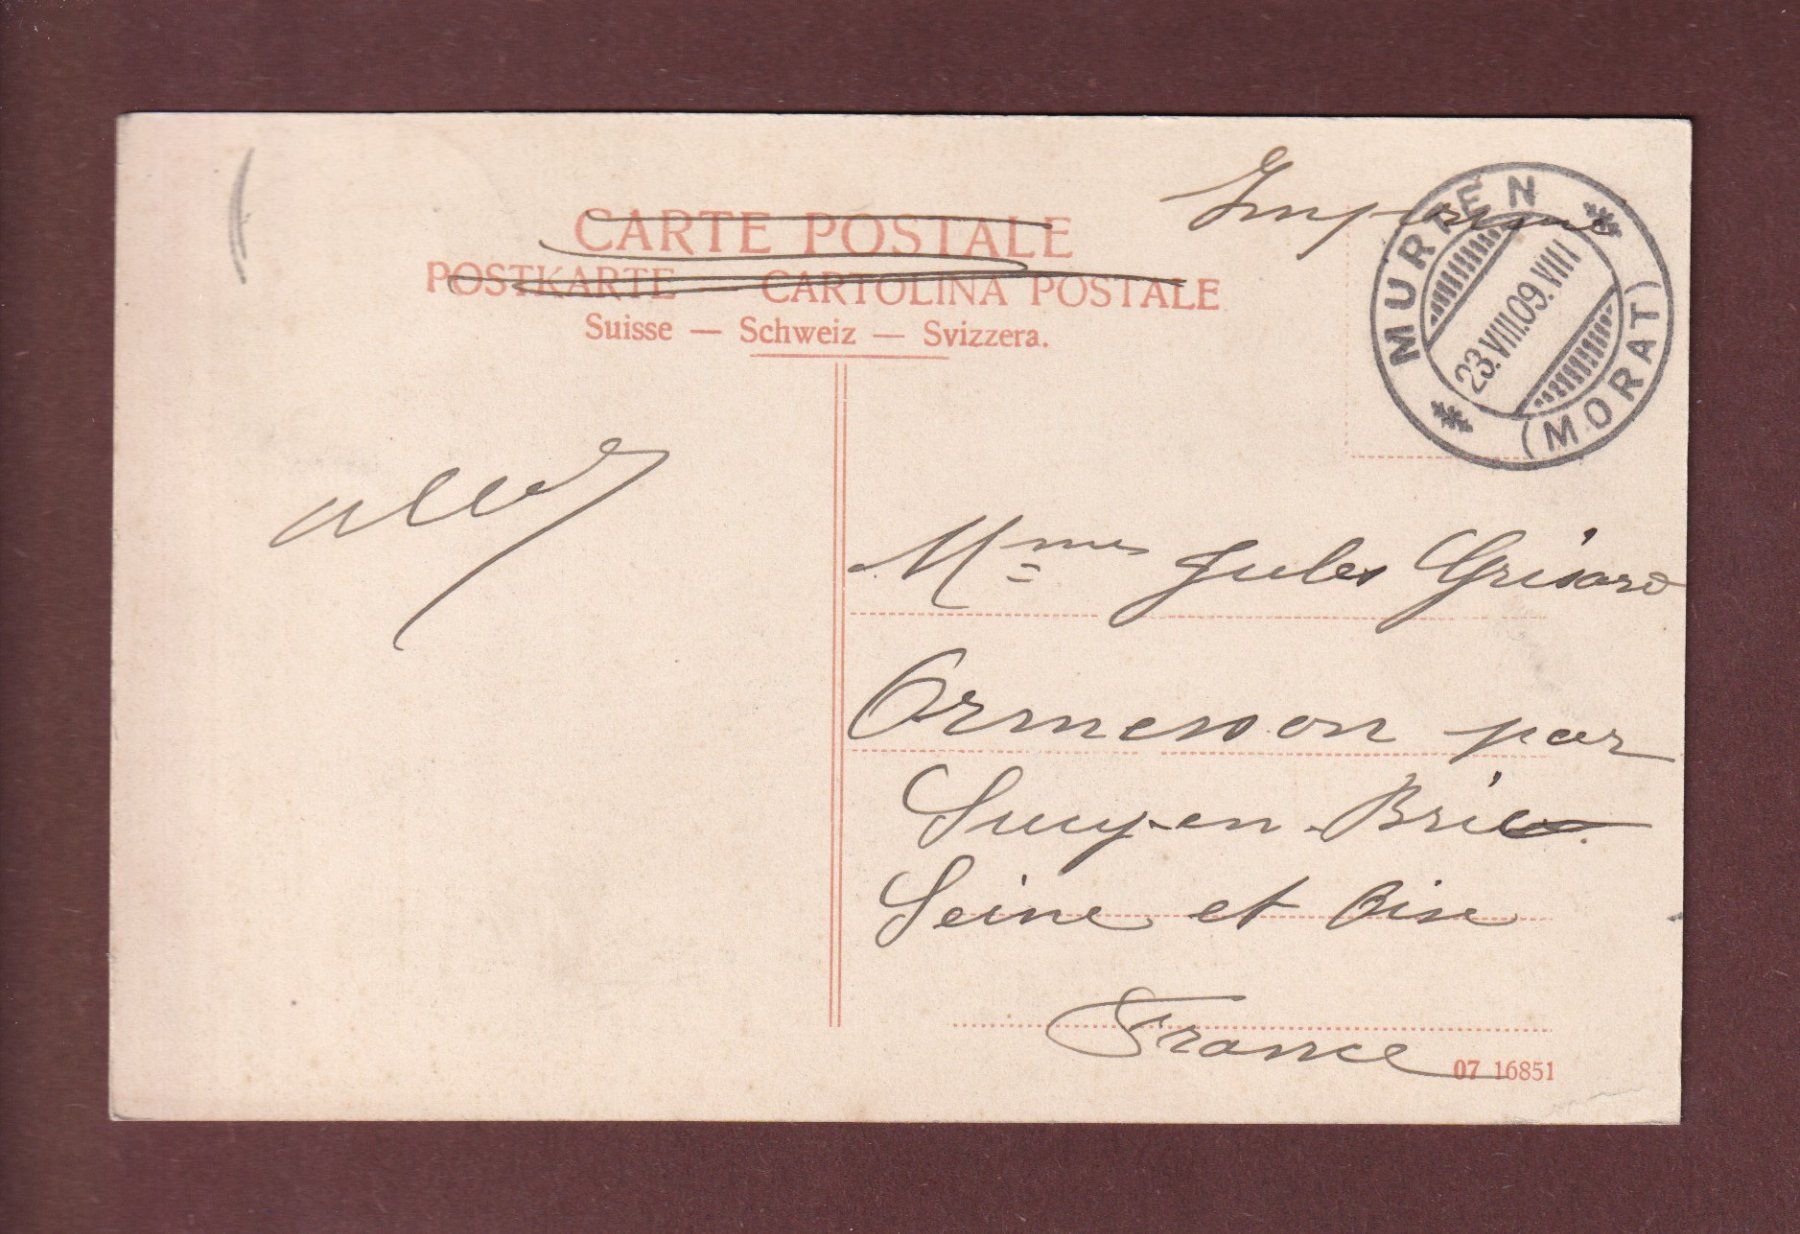 CARTE POSTALE
POSTKARTE — CARTOLINA POSTALE
Suisse — Schweiz — Svizzera.
MURTEN
23.VIII.09.VIII
(MORAT)
Mmes Jules Grisard
Ormesson par
Sucy-en-Brie
Seine et Oise
France
07 16851